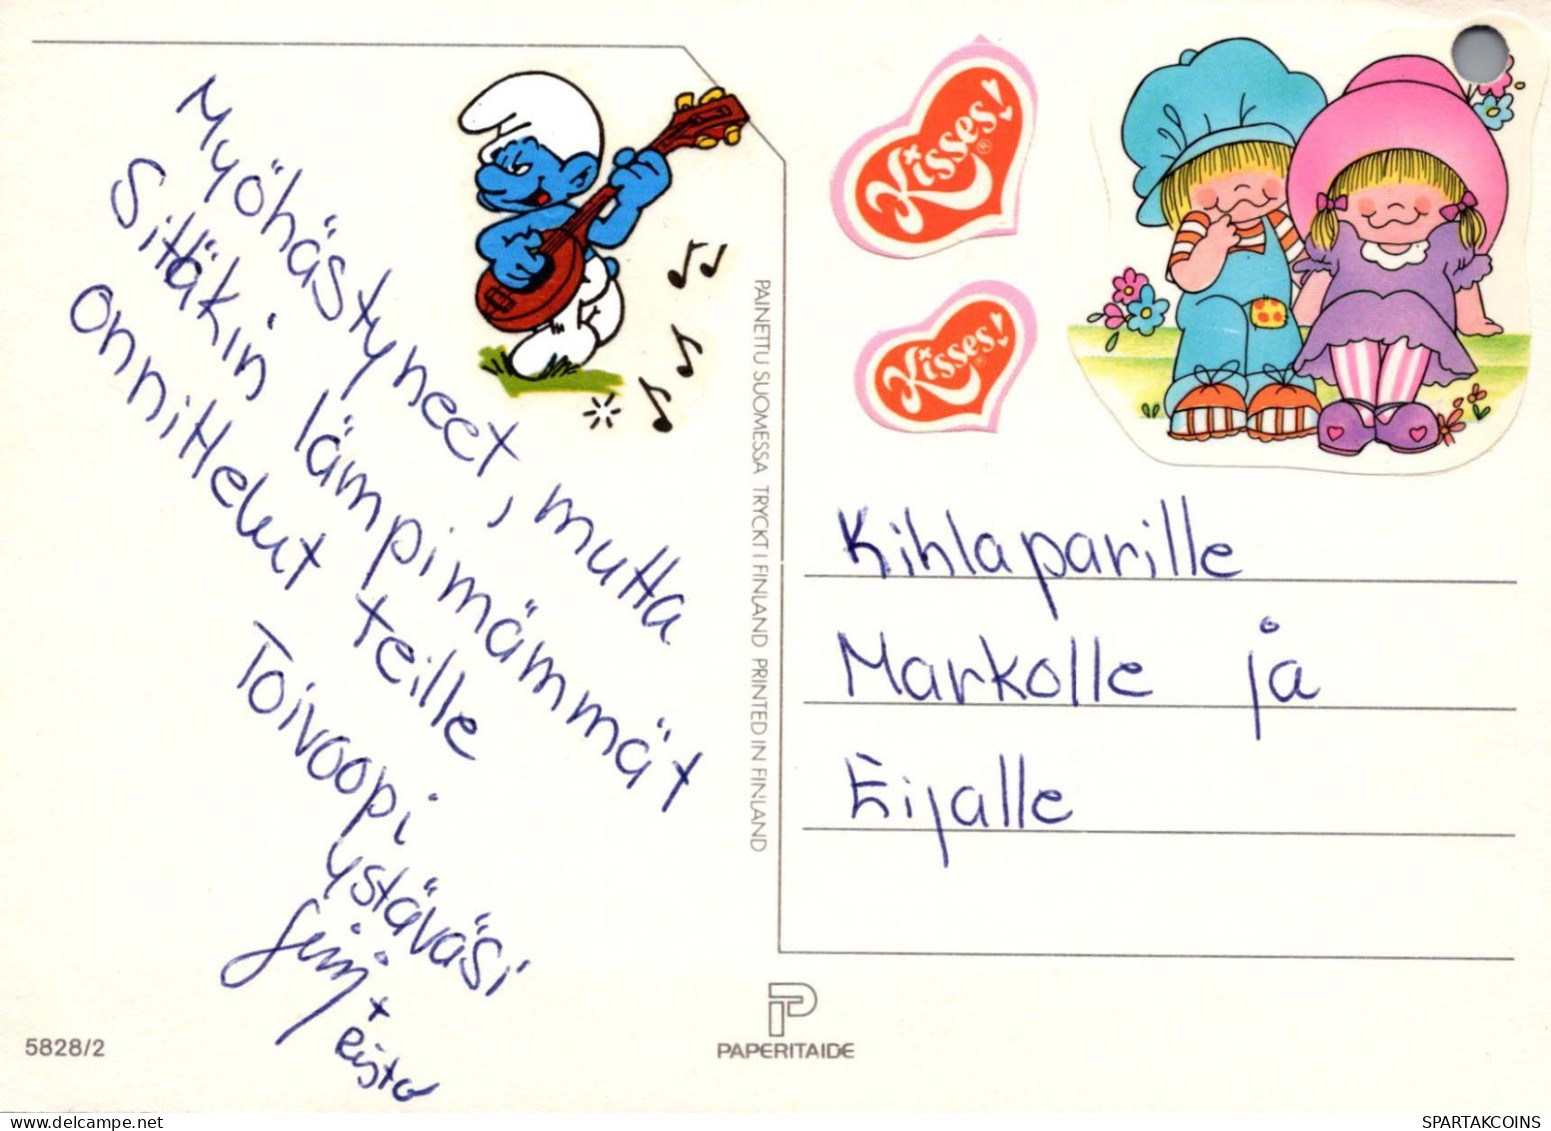 Myöhästyneet, mutta
Sittäkin lämpimämmät
onnittelut teille
Toivoopi
ystäväsi
+ Risto
Kisses!
Kisses!
Kihlaparille
Markolle ja
Eijalle
PAINETTU SUOMESSA TRYCKT I FINLAND PRINTED IN FINLAND
5828/2
PAPERITAIDE
SPARTAKCOINS